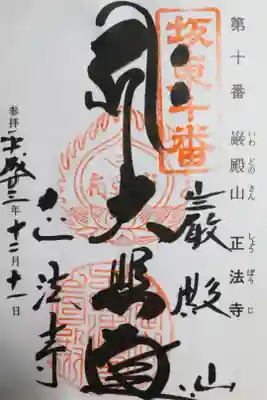 第十番 巌殿山 正法寺
いわ どの さん しよう ぼう じ
坂東十番
巌殿山
大
正法寺
参拝 平成廿三年十二月十一日